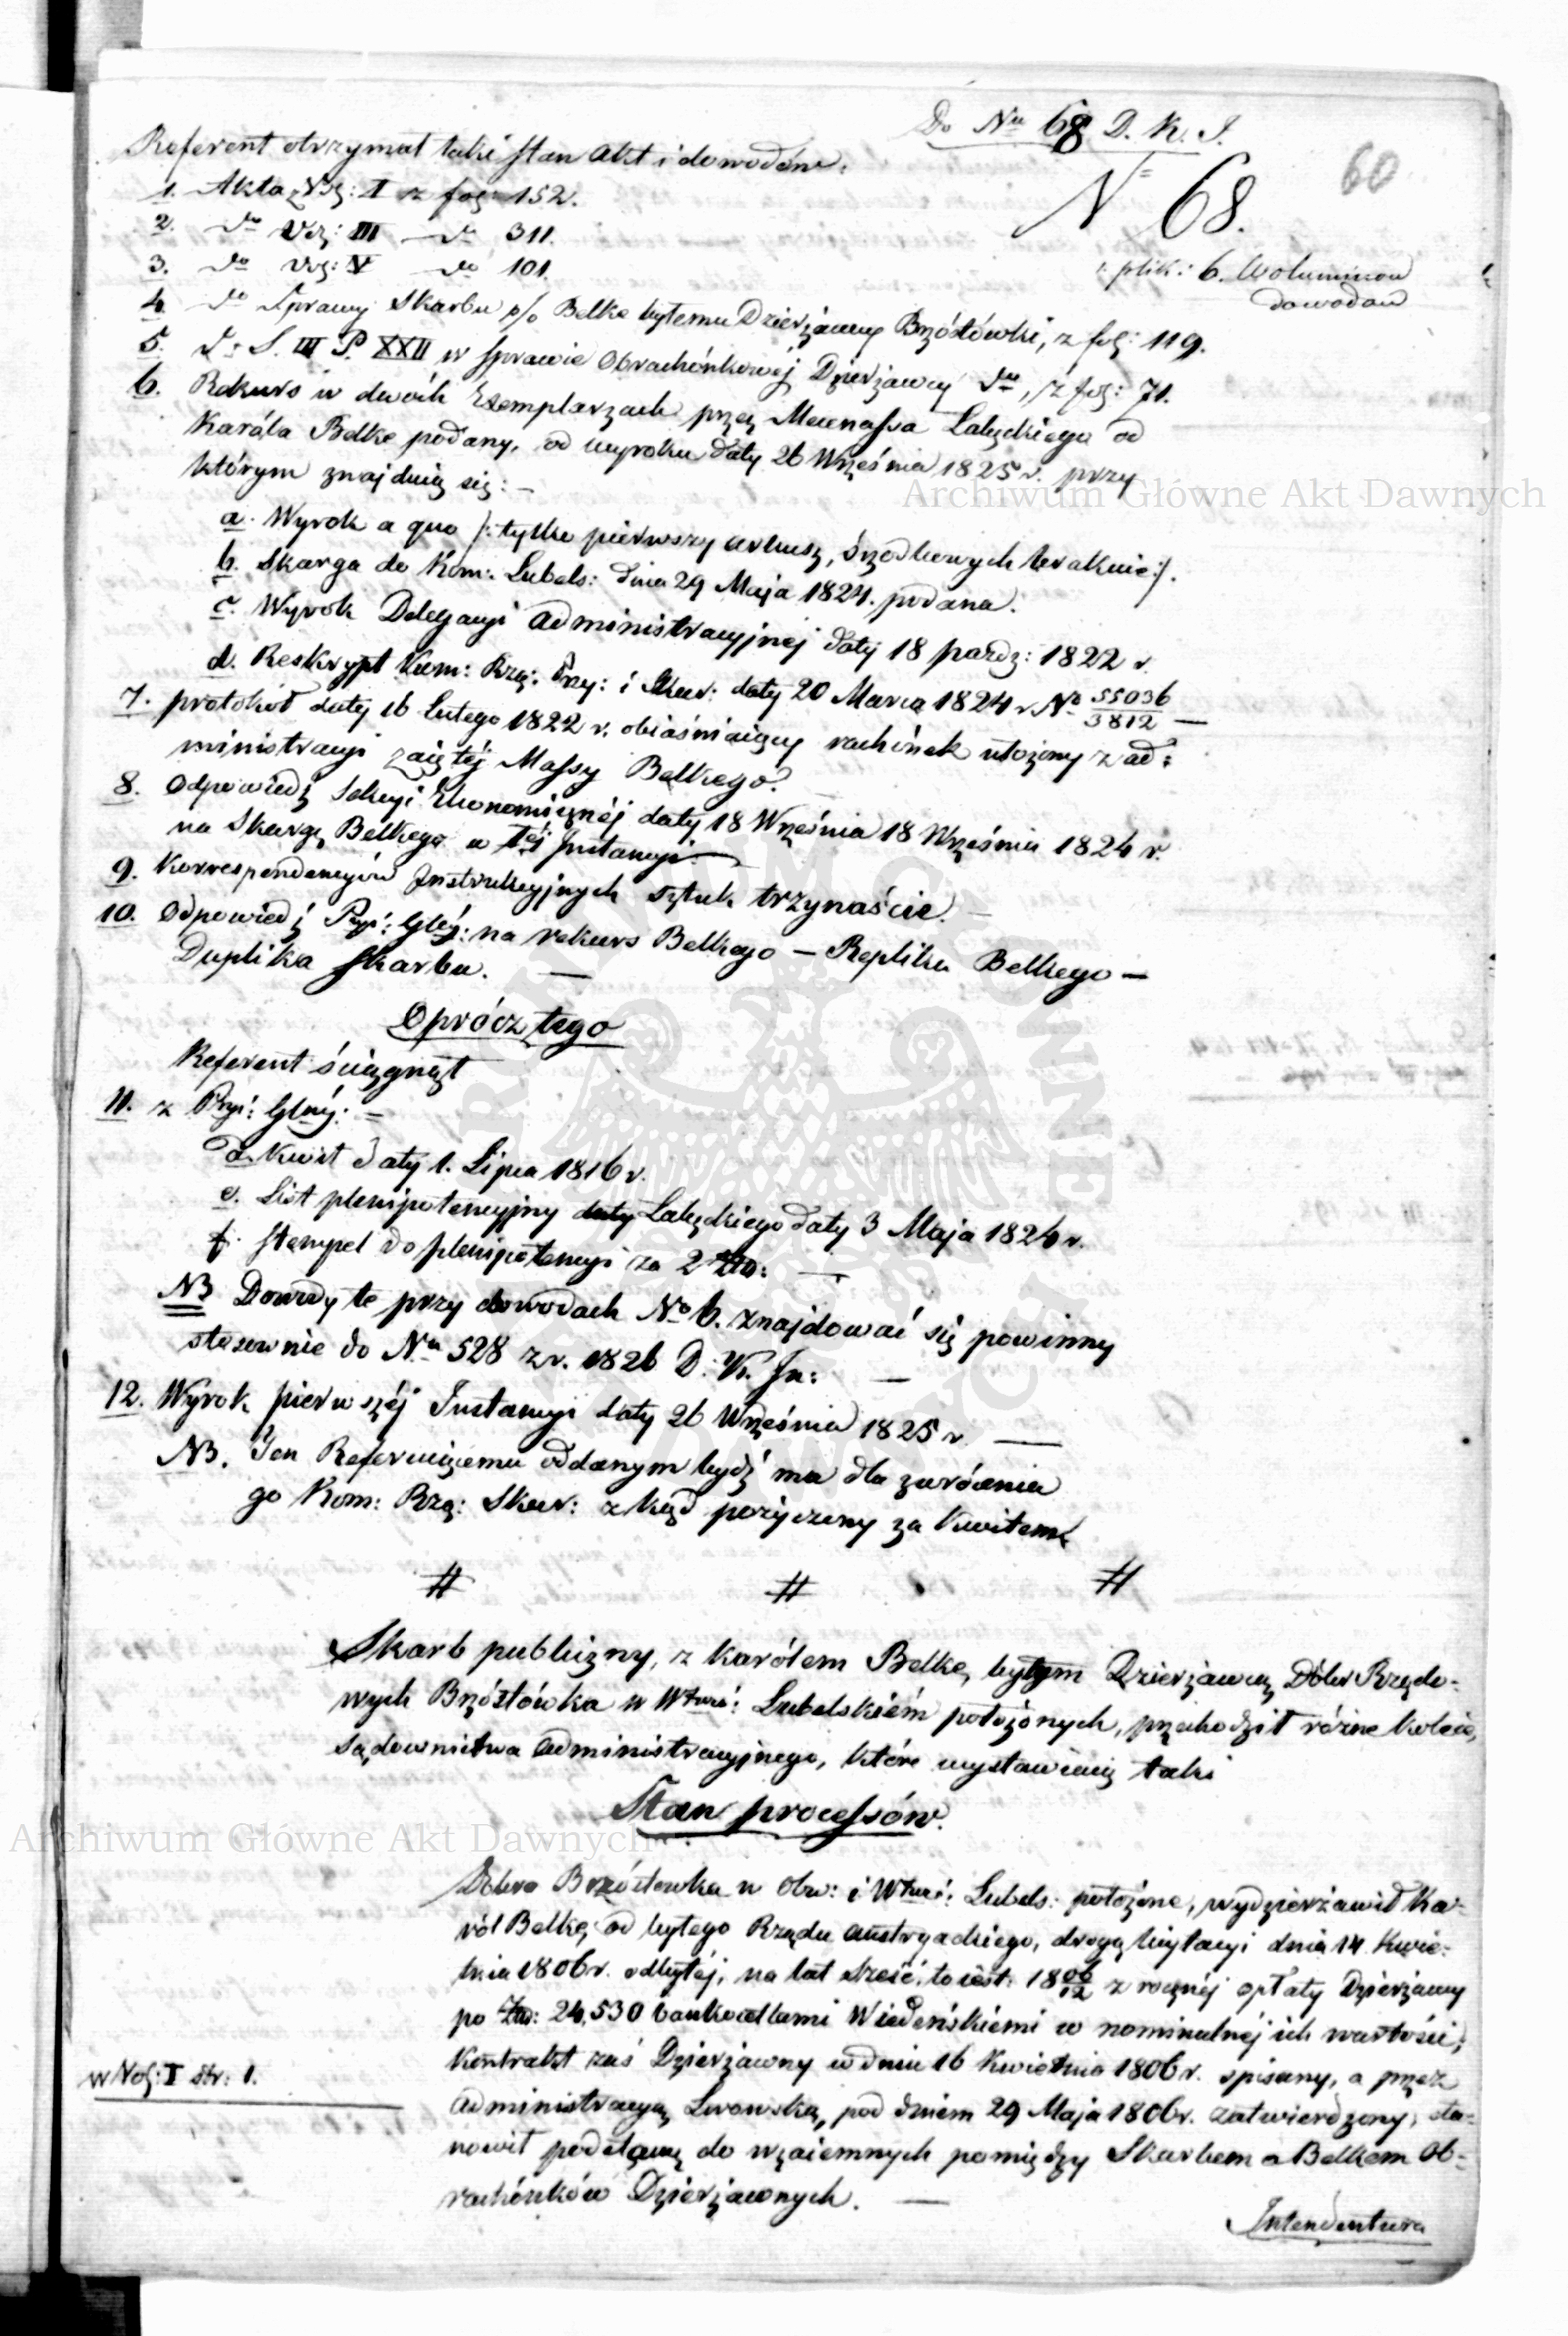 Do Nru 68 D. K. I.
60
N= 68.
1. plik: 6. Woluminow
dowodow
Referent otrzymał taki stan Akt i dowodów.
1. Akta Vol: II z fol: 152.
2. dto Vol: III dto 311.
3. dto Vol: V dto 101.
4. dto Sprawy Skarbu p/o Belke byłemu Dzierżawcy Brzóstówki, z fol: 119.
5. dto S. III P. XXII w sprawie Obrachónkowéj Dzierżawcy dto, z fol: 71.
6. Rekurs w dwóch Exemplarzach przez Mecenassa Łabęckiego od
Karóla Belke podany, od wyroku daty 26 Września 1825 r. przy
którym znajduią się: —
a. Wyrok a quo /: tylko pierwszy arkusz, śrzodkowych brakuie :/.
b. Skarga do Kom: Lubels: dnia 29 Maja 1824. podana.
c. Wyrok Delegacyi Administracyjnéj daty 18 pazdz: 1822 r.
d. Reskrypt Kom: Rzą: Przy: i Skar: daty 20 Marca 1824 r. No 55036/3812 —
7. protokół daty 16 Lutego 1822 r. obiaśniaiący rachónek ułożony z ad:
ministracyi zaiętéj Massy Belkego.
8. Odpowiedź Sekcyi Ekonomicznéj daty 18 Września 18 Września 1824 r.
na Skargę Belkego w Téj Instancyi. —
9. Korrespondencyów Instrukcyjnych sztuk trzynaście. —
10. Odpowiedź Pryi: Głłéj: na rekurs Belkego — Replika Belkego —
Duplika Skarbu. —
Oprócz tego
Referent ściągnął
11. z Pryi: Głnéj: =
d. Kwit daty 1. Lipca 1816 r.
e. List plenipotencyjny daty Łabęckiego daty 3 Maja 1824 r.
f. Stempel do plenipotencyi za 2 Złto: —
NB Dowody te przy dowodach No 6. znajdować się powinny
stosownie do Nru 528 z r. 1826 D. K. In: —
12. Wyrok pierwszéj Instancyi daty 26 Września 1825 r. —
NB. Ten Referuiącemu oddanym bydź ma dla zwrócenia
go Kom: Rzą: Skar: zkąd pożyczony za Kwitem.
# # #
Skarb publiczny, z Karólem Belke, byłym Dzierżawcą Dóbr Rządo=
wych Brzóstówka w Wtwie: Lubelskiém położonych, przechodził różne koleie,
Sądownictwa Administracyjnego, które wystawiaią taki
Stan processów.
Dobra Brzóstowka w Obw: i Wtwie: Lubels: położone, wydzierżawił Ka=
ról Belke, od byłego Rządu Austryackiego, drogą licytacyi dnia 14 Kwie=
tnia 1806 r. odbytéj, na lat sześć, to iest: 1806/12 z rocznéj opłaty Dzierżawy
po Złto: 24,530 bankocetlami Wiedeńskiémi w nominalnéj ich wartości,
Kontrakt zaś Dzierżawny w dniu 16 Kwietnia 1806 r. spisany, a przez
Administracyą Lwowską, pod dniem 29 Maja 1806 r. zatwierdzony, sta=
nowił podstawę do wzaiemnych pomiędzy Skarbem a Belkem Ob=
rachónków Dzierżawnych. —
w Vol: I str: 1.
Intendentura
Archiwum Główne Akt Dawnych
Archiwum Główne Akt Dawnych
ARCHIWUM GŁÓWNE AKT DAWNYCH